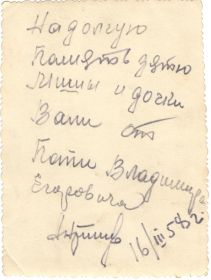 На долгую
память дядю
Миши и дочки
Вали от
Пати Владимира
Егоровича
16/III 58 г.